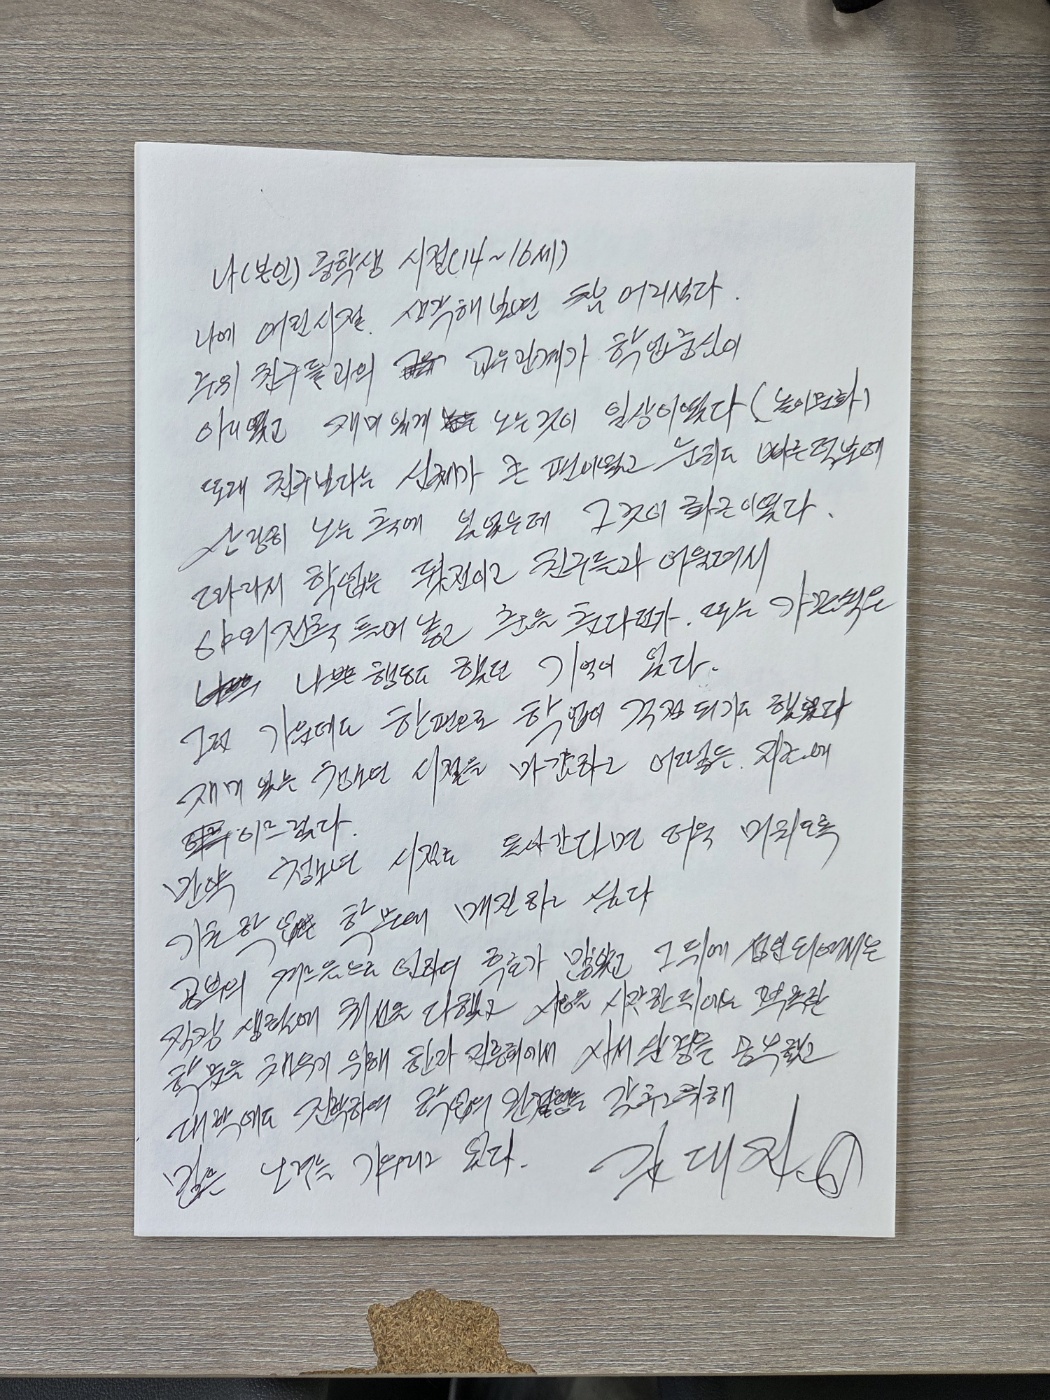 나(본인) 중학생 시절(14~16세)
나에 어린시절. 생각해보면 참 어리섰다.
주위 친구들과의 교우관계가 학업중심이
아니였고 재미있게 노는것이 일상이였다(놀이문화)
또래 친구보다는 신체가 큰 편이였고 눈치도 빠른덕분에
상당히 노는 축에 있었는데 그것이 화근이였다.
따라서 학업은 뒷전이고 친구들과 어울려서
야외전축 틀어 놓고 춤을 춘다던가. 또는 가끔씩은
나쁜행동도 했던 기억이 있다.
그런 가운데도 한편으로 학업이 걱정되기도 했었다
재미있는 학창시절을 마감하고 어떠덧 지금에
이르렀다.
만약 청소년 시절로 돌아간다면 더욱 미치도록
기초학업 학문에 매진하고 싶다
공부의 게으름으로 인하여 후회가 많았고 그 뒤에 성인되어서는
직장 생활에 최선을 다했고 사업을 시작한 뒤에도 부족한
학문을 채우기 위해 한과 전통 에서 자세 을 공부했고
대학에도 진학하여 학업의 완성을 갖추기위해
많은 노력을 기우리고 있다. 김대